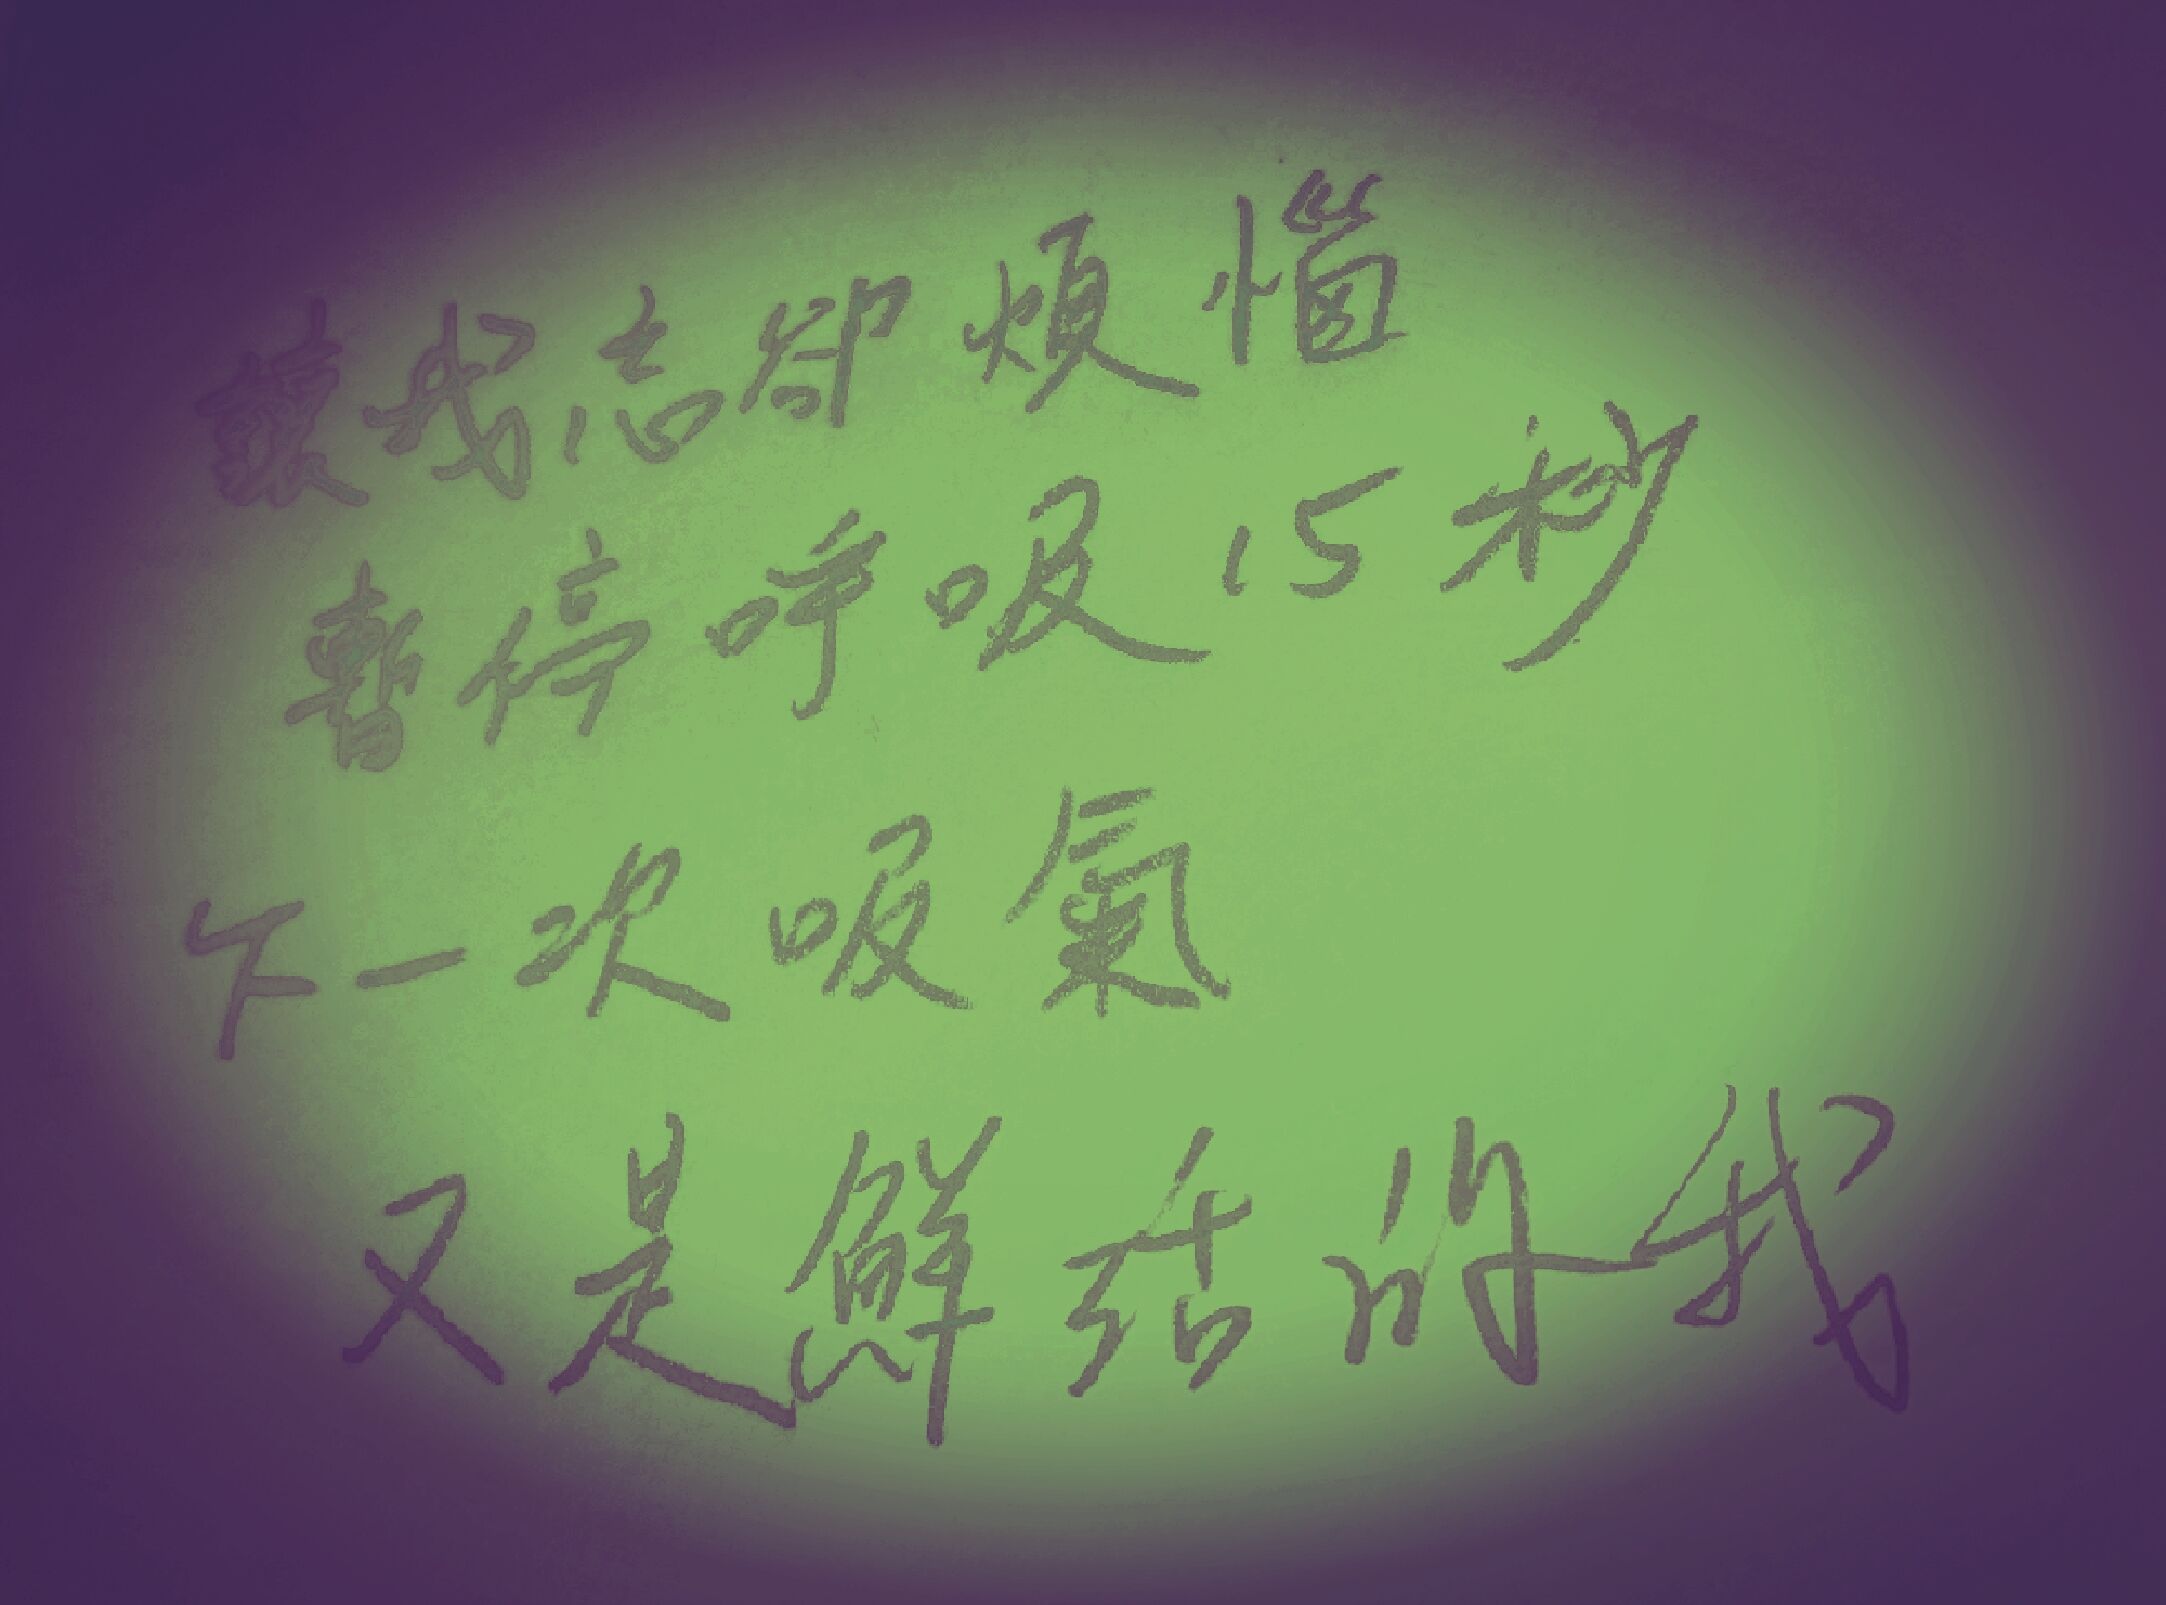 讓我忘卻煩惱
暫停呼吸15秒
下一次吸氣
又是鮮活的我